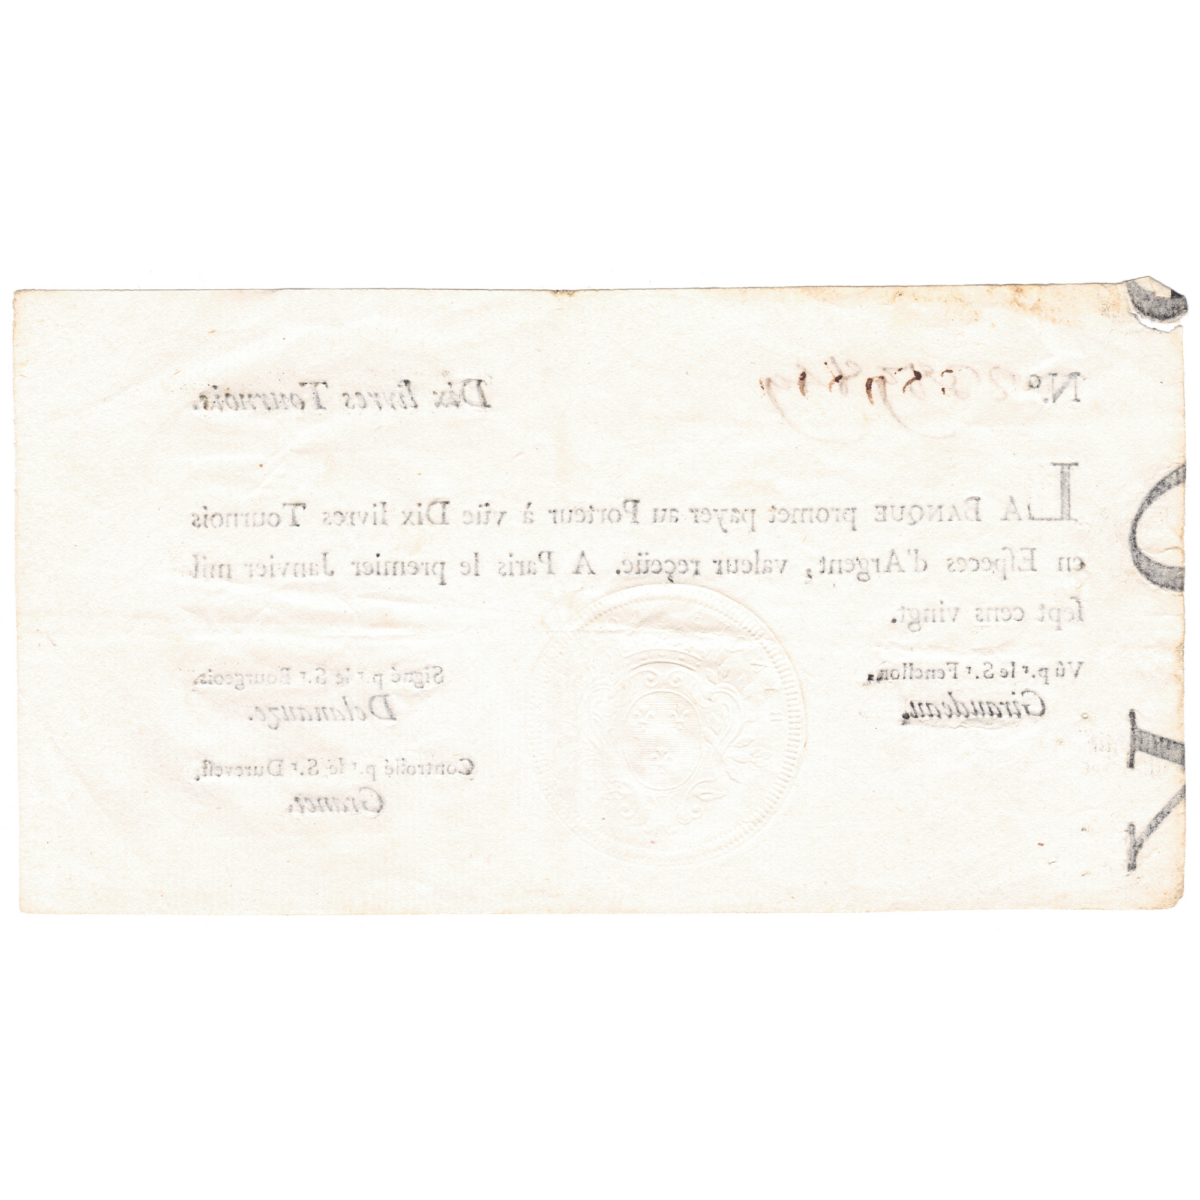 N.º Dix livres Tournois.
LA BANQUE promet payer au Porteur à vûe Dix livres Tournois
en Eſpeces d'Argent, valeur reçeüe. A Paris le premier Janvier mil
ſept cens vingt.
Vû p.r le S.r Fenellon,
Giraudeau.
Signé p.r le S.r Bourgeois.
Delanauze.
Controllé p.r le S.r Dureveſt,
Granet.